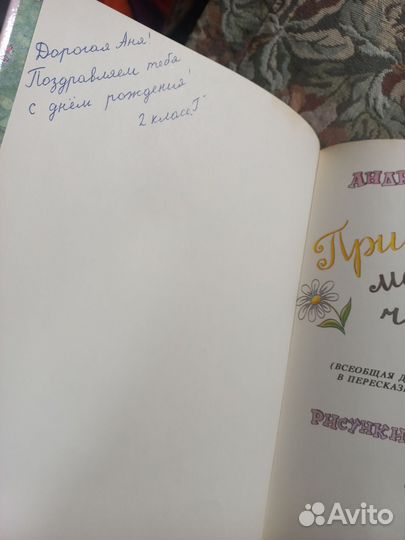 Дорогая Аня!
Поздравляем тебя
с днём рождения!
2 класс "Г"
АНД
При
ма
ч
(ВСЕОБЩАЯ Д
В ПЕРЕСКАЗ
РИСУНКИ
Avito